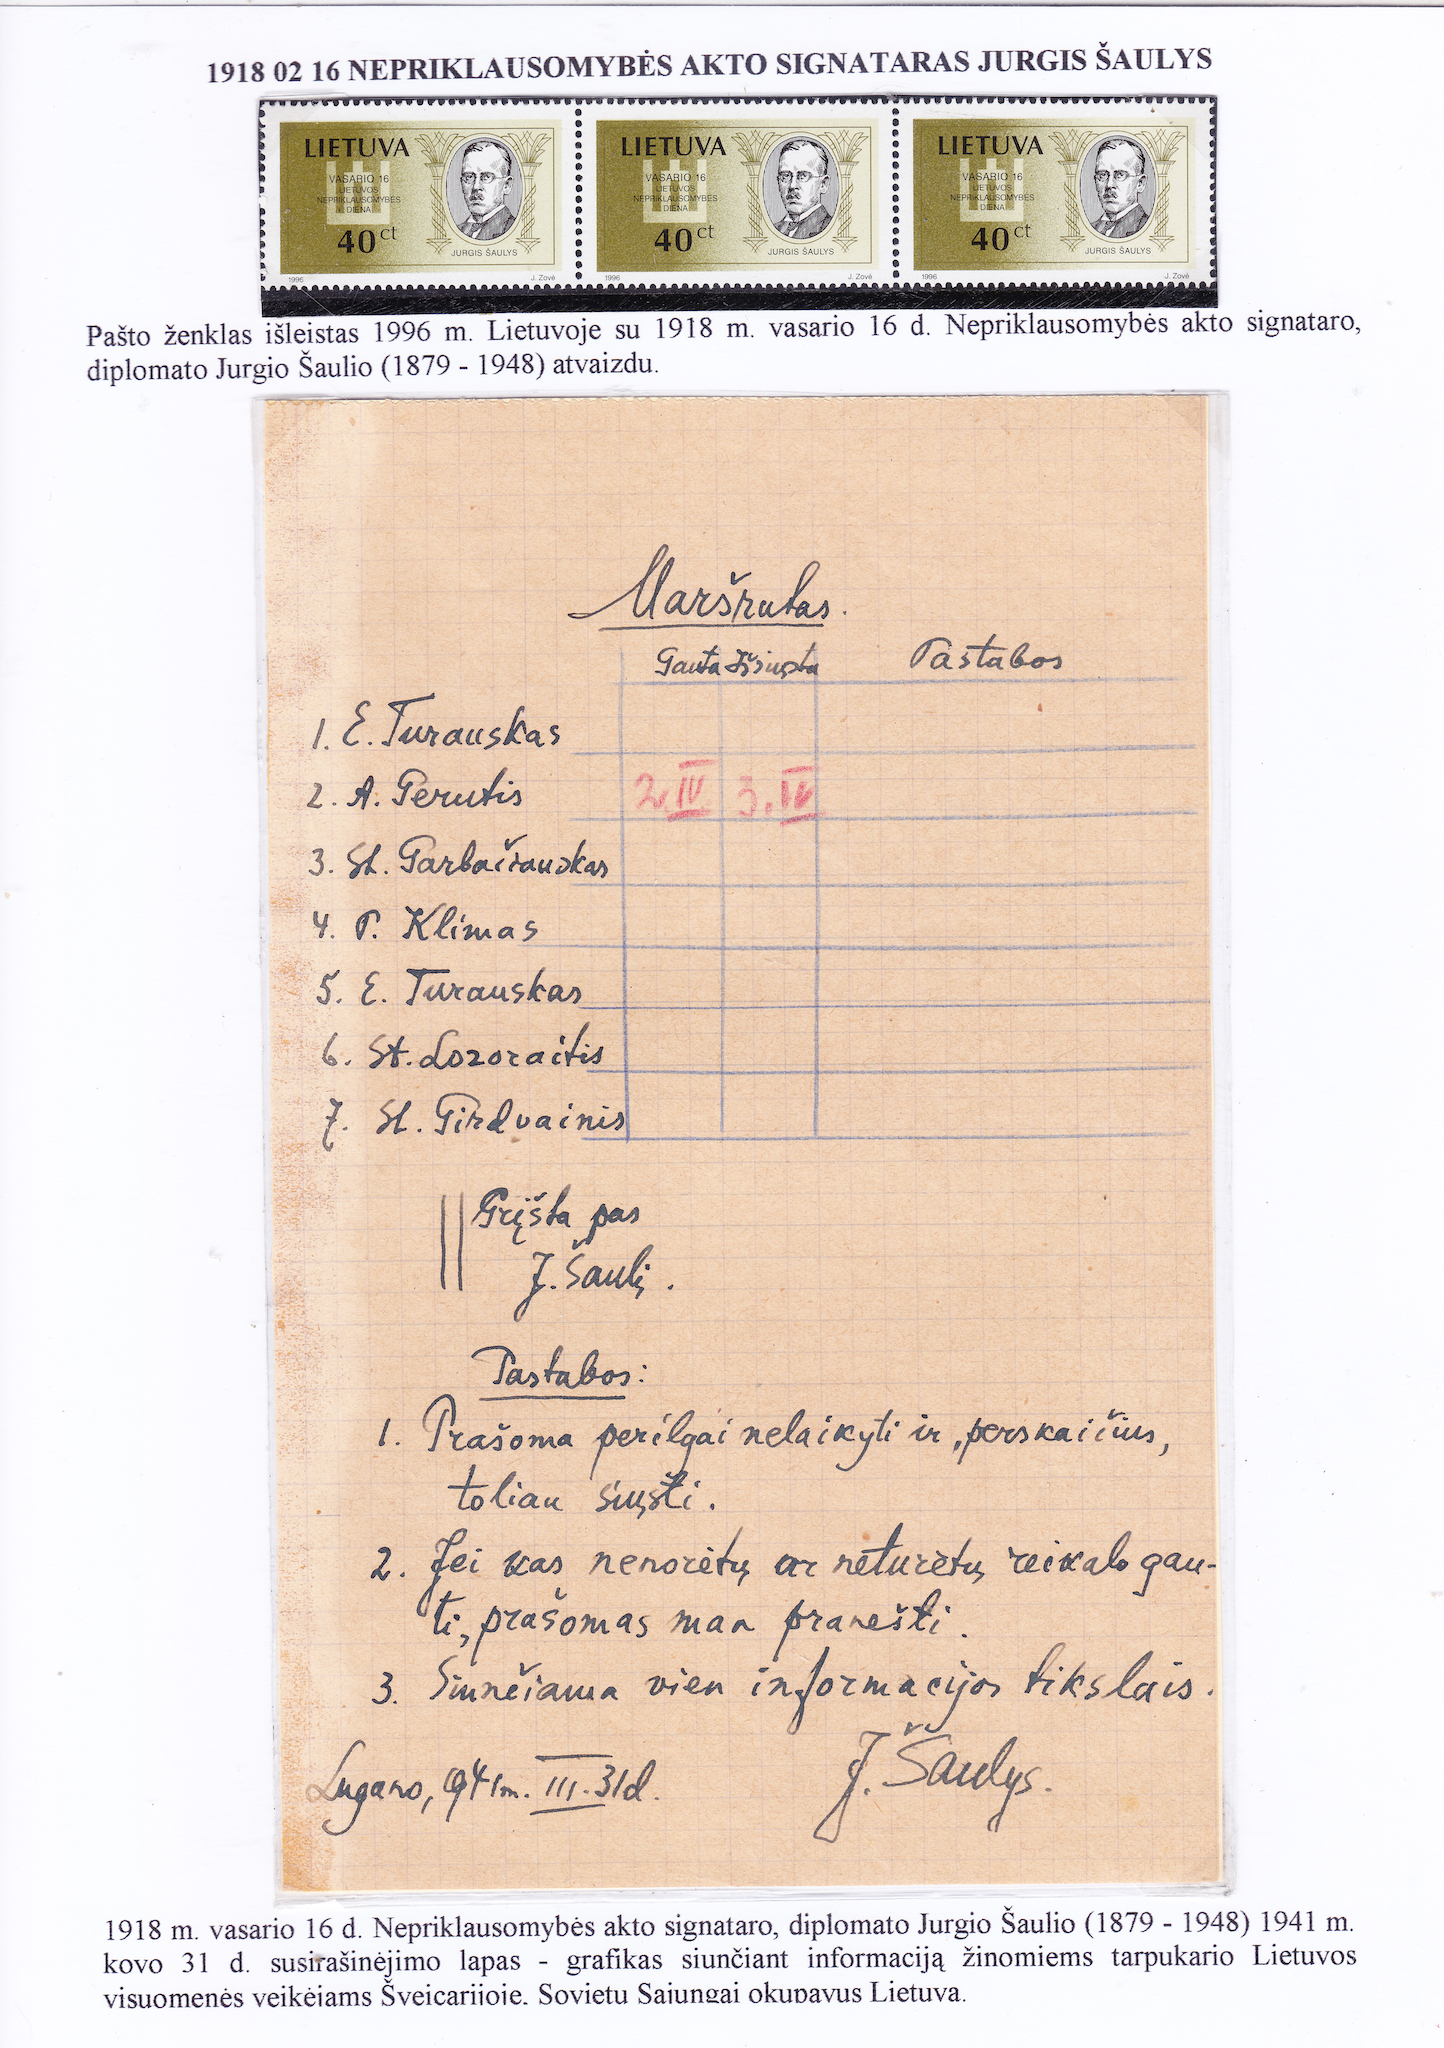 1918 02 16 NEPRIKLAUSOMYBĖS AKTO SIGNATARAS JURGIS ŠAULYS
LIETUVA
VASARIO 16
LIETUVOS
NEPRIKLAUSOMYBĖS
DIENA
40 ct
JURGIS ŠAULYS
1996 J. Zovė
LIETUVA
VASARIO 16
LIETUVOS
NEPRIKLAUSOMYBĖS
DIENA
40 ct
JURGIS ŠAULYS
1996 J. Zovė
LIETUVA
VASARIO 16
LIETUVOS
NEPRIKLAUSOMYBĖS
DIENA
40 ct
JURGIS ŠAULYS
1996 J. Zovė
Pašto ženklas išleistas 1996 m. Lietuvoje su 1918 m. vasario 16 d. Nepriklausomybės akto signataro,
diplomato Jurgio Šaulio (1879 - 1948) atvaizdu.
Maršrutas.
Gauta Išsiųsta Pastabos
1. E. Turauskas
2. A. Gerutis 2.IV 3.IV
3. St. Garbačiauskas
4. P. Klimas
5. E. Turauskas
6. St. Lozoraitis
7. St. Girdvainis
Grįšta pas
J. Šaulį.
Pastabos:
1. Prašoma perilgai nelaikyti ir, perskaičius,
toliau siųsti.
2. Jei kas nenorėtų ar neturėtų reikalo gau-
ti, prašomas man pranešti.
3. Siunčiama vien informacijos tikslais.
Lugano, 1941 m. III.31 d. J. Šaulys.
1918 m. vasario 16 d. Nepriklausomybės akto signataro, diplomato Jurgio Šaulio (1879 - 1948) 1941 m.
kovo 31 d. susirašinėjimo lapas - grafikas siunčiant informaciją žinomiems tarpukario Lietuvos
visuomenės veikėjams Šveicarijoje, Sovietų Sąjungai okupavus Lietuvą.